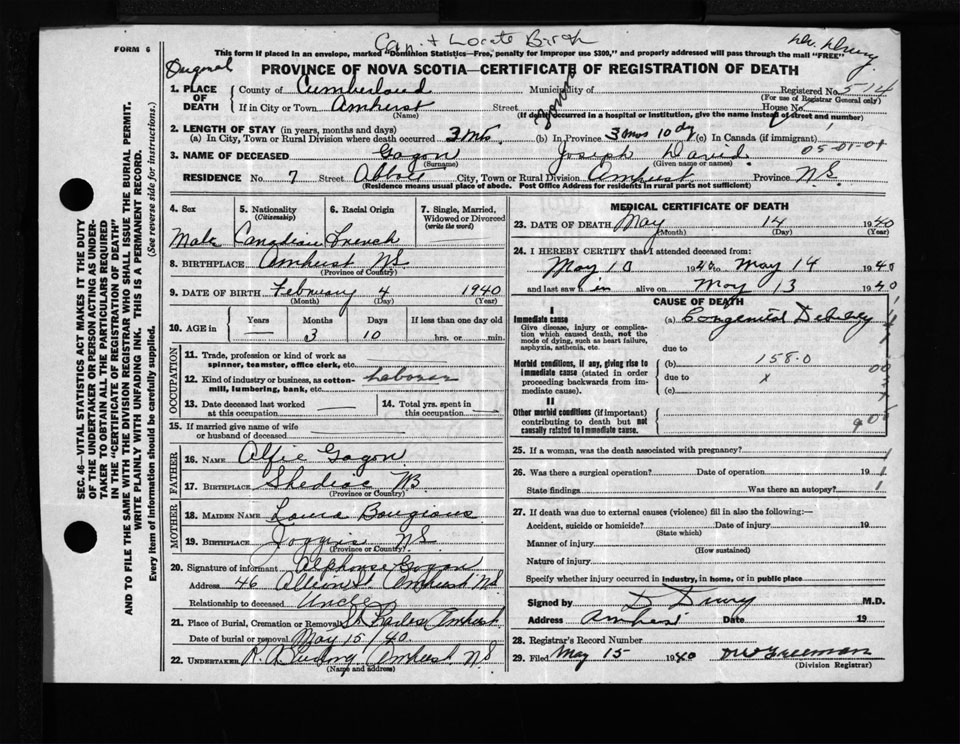 FORM 6
Can. + Locate Birth
Dr. Drury
This form if placed in an envelope, marked "Dominion Statistics—Free, penalty for improper use $300," and properly addressed will pass through the mail "FREE"
Original
PROVINCE OF NOVA SCOTIA—CERTIFICATE OF REGISTRATION OF DEATH
1. PLACE OF DEATH
County of Cumberland Municipality of Registered No. 514
(For use of Registrar General only)
If in City or Town Amherst Street House No.
(Name) (If death occurred in a hospital or institution, give the name instead of street and number)
2. LENGTH OF STAY (in years, months and days)
(a) In City, Town or Rural Division where death occurred 3 Mts (b) In Province 3 mos 10 dy (c) In Canada (if immigrant)
05-01-01
3. NAME OF DECEASED Gogon Joseph David
(Surname) (Given name or names)
RESIDENCE No. 7 Street City, Town or Rural Division Amherst Province N.S.
(Residence means usual place of abode. Post Office Address for residents in rural parts not sufficient)
4. Sex 5. Nationality (Citizenship) 6. Racial Origin 7. Single, Married, Widowed or Divorced (write the word)
Male Canadian French
8. BIRTHPLACE Amherst N.S.
(Province of Country)
9. DATE OF BIRTH February 4 1940
(Month) (Day) (Year)
10. AGE in Years Months Days If less than one day old
— 3 10 hrs. or min.
OCCUPATION
11. Trade, profession or kind of work as spinner, teamster, office clerk, etc.
12. Kind of industry or business, as cotton-mill, lumbering, bank, etc. Laborer
13. Date deceased last worked at this occupation — 14. Total yrs. spent in this occupation —
15. If married give name of wife or husband of deceased —
FATHER
16. NAME Alfie Gogon
17. BIRTHPLACE Shediac NB
(Province or Country)
MOTHER
18. MAIDEN NAME Laura
19. BIRTHPLACE Joggins N.S.
(Province or Country)
20. Signature of informant Alphonse Gogon
Address 46 Albion St Amherst N.S.
Relationship to deceased Uncle
21. Place of Burial, Cremation or Removal St Charles Amherst
Date of burial or removal May 15/40
22. UNDERTAKER Amherst N.S.
(Name and address)
MEDICAL CERTIFICATE OF DEATH
23. DATE OF DEATH May 14 1940
(Month) (Day) (Year)
24. I HEREBY CERTIFY that I attended deceased from:
May 10 1940 to May 14 1940
and last saw h im alive on May 13 1940
CAUSE OF DEATH
I
Immediate cause (a) Congenital Debility
Give disease, injury or complication which caused death, not the mode of dying, such as heart failure, asphyxia, asthenia, etc.
due to
Morbid conditions, if any, giving rise to immediate cause (stated in order proceeding backwards from immediate cause).
(b) 158.0
due to x
(c)
II
Other morbid conditions (if important) contributing to death but not causally related to immediate cause.
25. If a woman, was the death associated with pregnancy?
26. Was there a surgical operation? Date of operation 19
State findings Was there an autopsy?
27. If death was due to external causes (violence) fill in also the following:—
Accident, suicide or homicide? Date of injury 19
(State which)
Manner of injury
(How sustained)
Nature of injury
Specify whether injury occurred in industry, in home, or in public place
Signed by D Drury M.D.
Address Amherst Date 19
28. Registrar's Record Number
29. Filed May 15 1940
(Division Registrar)
SEC. 46—VITAL STATISTICS ACT MAKES IT THE DUTY
OF THE UNDERTAKER OR PERSON ACTING AS UNDER-
TAKER TO OBTAIN ALL THE PARTICULARS REQUIRED
IN THE "CERTIFICATE OF REGISTRATION OF DEATH"
AND TO FILE THE SAME WITH THE DIVISION REGISTRAR WHO SHALL ISSUE THE BURIAL PERMIT.
WRITE PLAINLY WITH UNFADING INK. THIS IS A PERMANENT RECORD.
Every item of information should be carefully supplied. (See reverse side for instructions.)